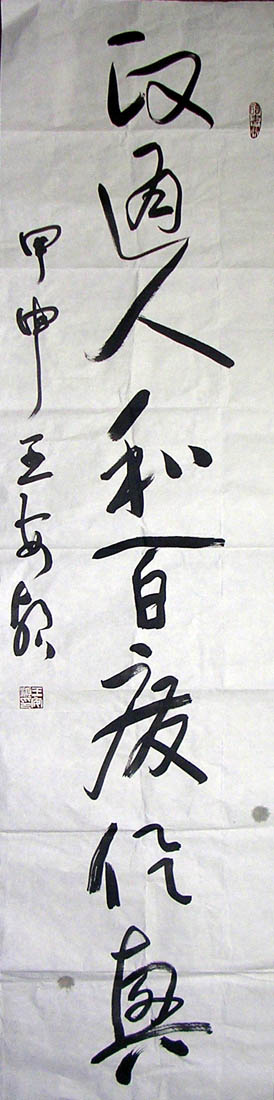 政通人和百废俱興
甲申 王安